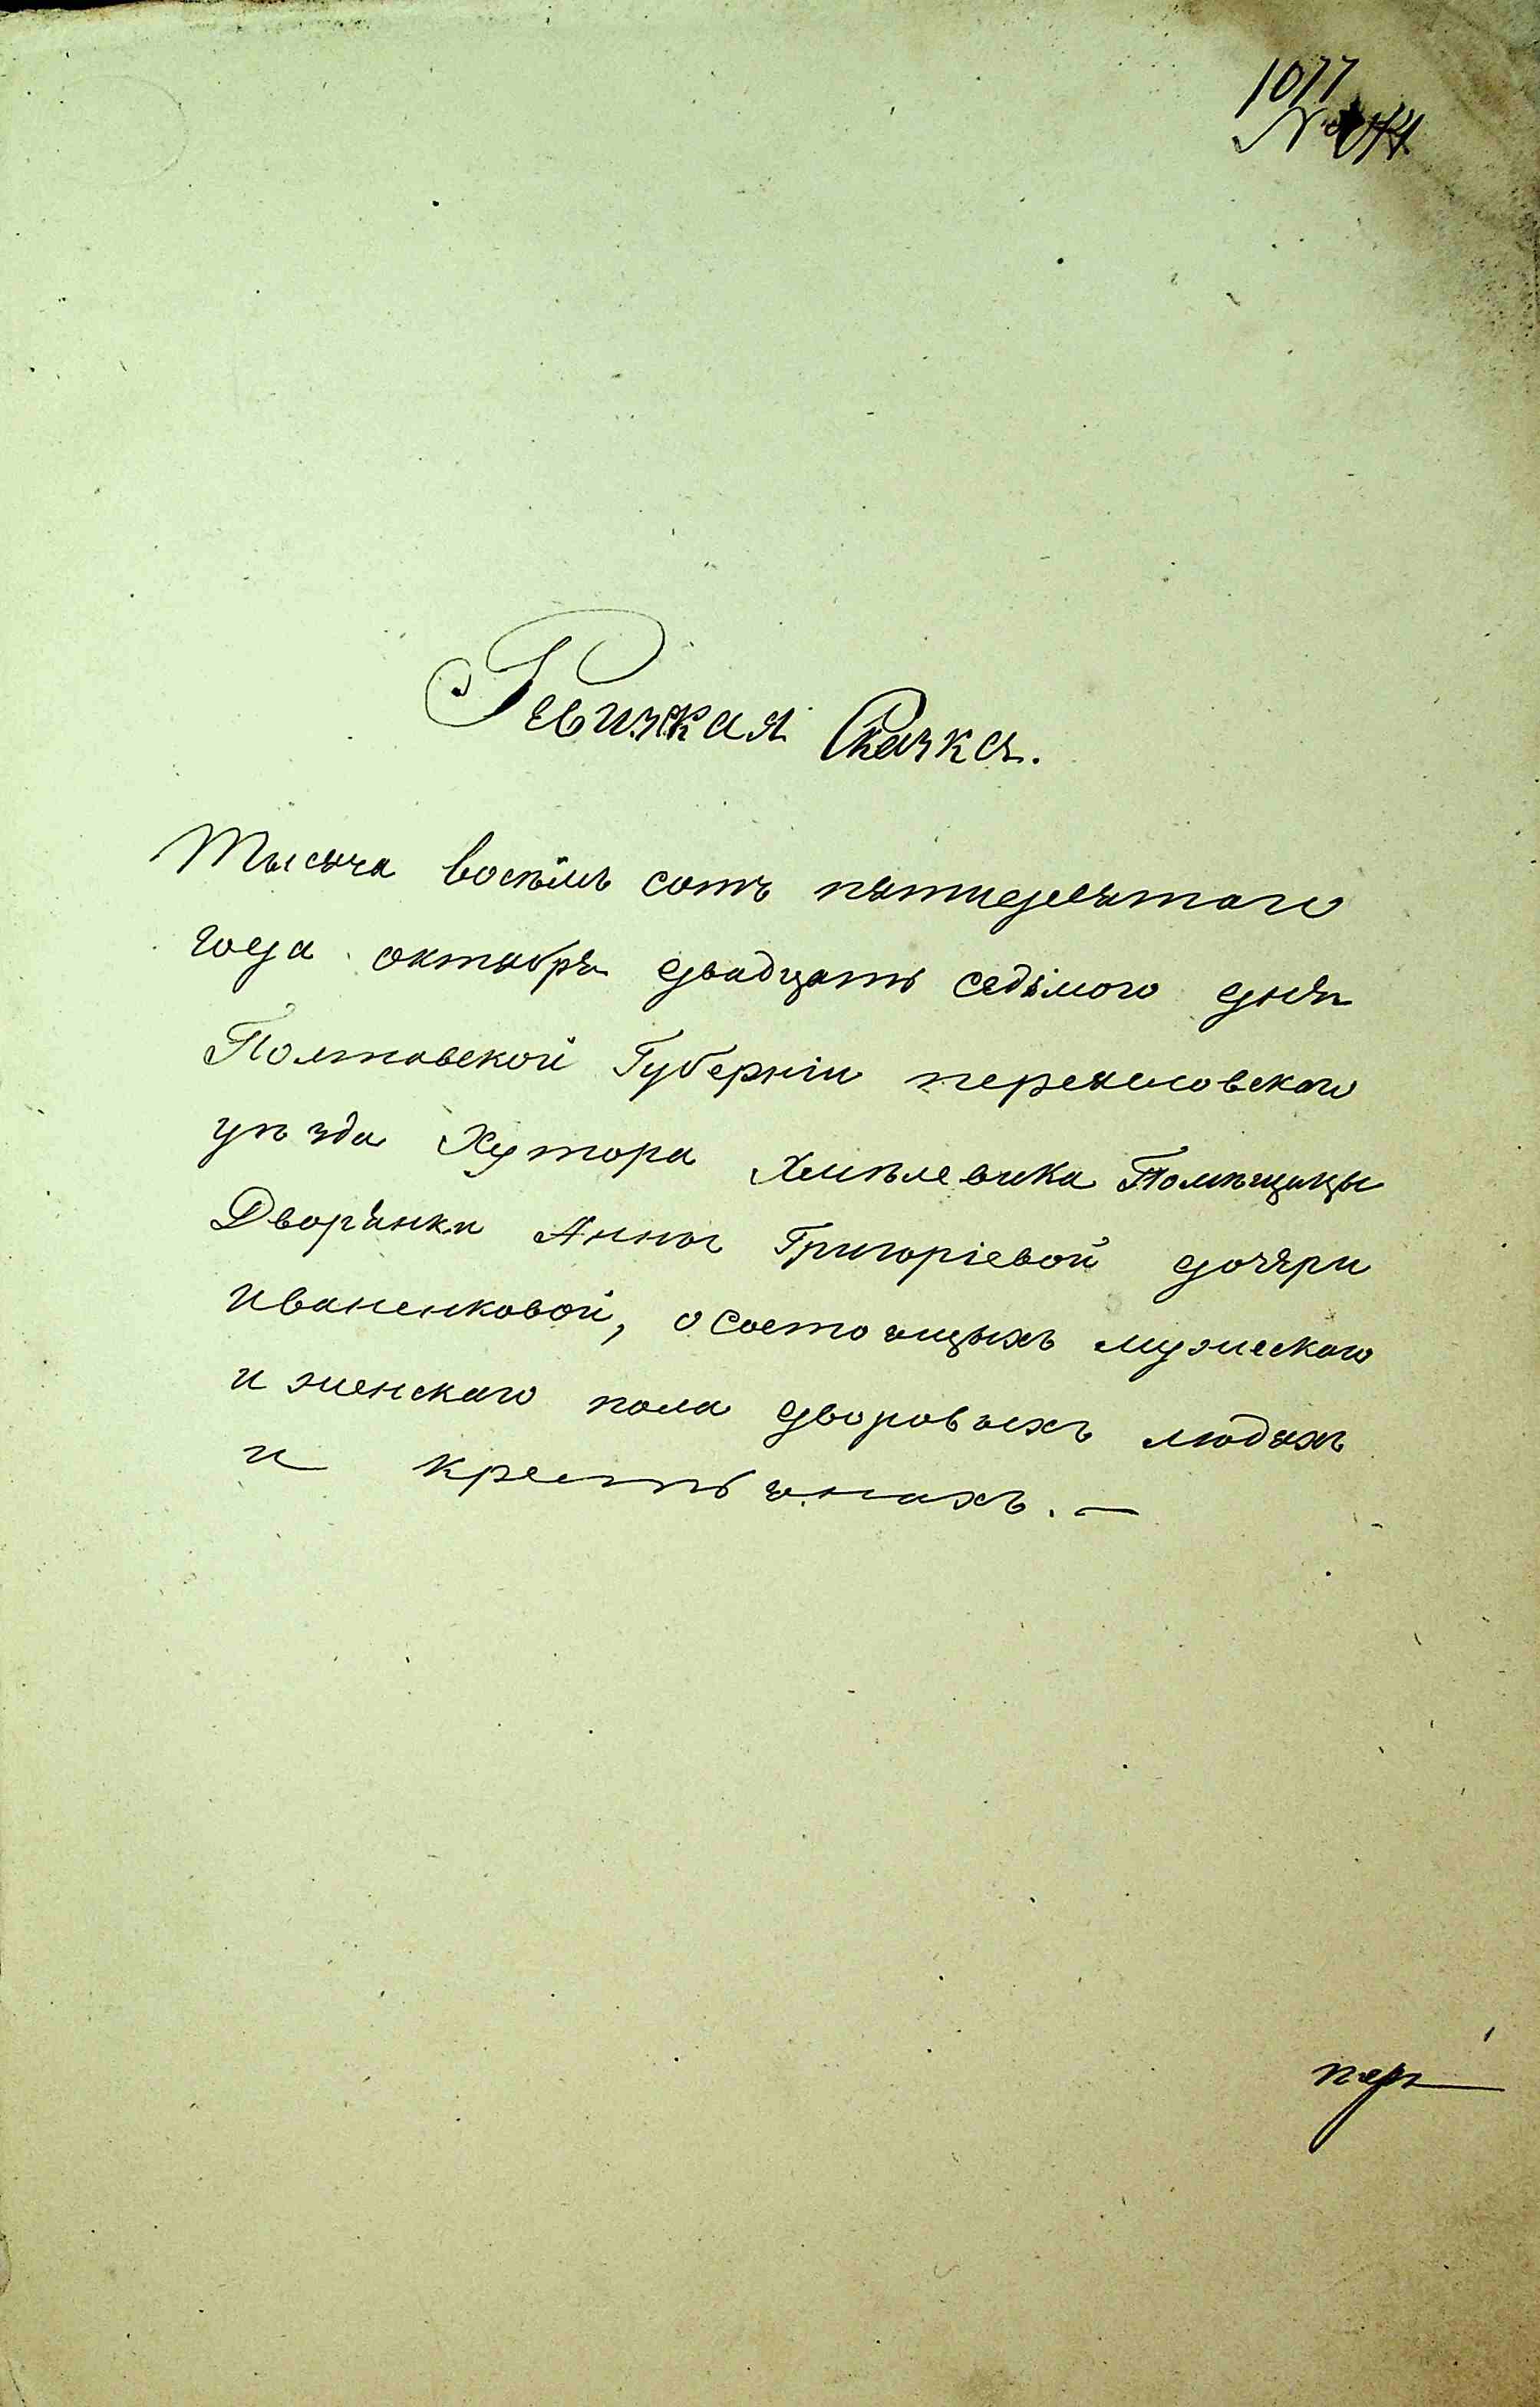 1077
№
Ревизкая Сказка.
Тысяча восѣмь сотъ пятидесятаго
года октября двадцать седьмого дня
Полтавской Губерніи переясловскаго
уѣзда Хутора Хмѣлевика Помѣщицы
Дворянки Анны Григоріевой дочери
Иваненковой, о состоящихъ мужескаго
и женскаго пола дворовыхъ людяхъ
и крестьянахъ. —